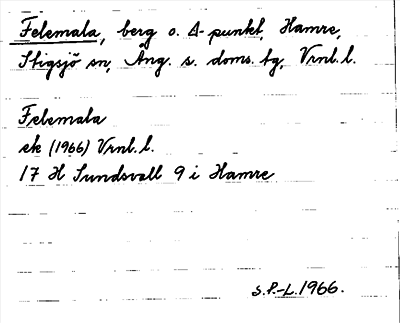 Felemala, berg o. Δ-punkt, Hamre,
Stigsjö sn, Ång. s. doms. tg, Vrnl. l.
Felemala
ek (1966) Vrnl. l.
17 H Sundsvall 9 i Hamre
S.P.-L. 1966.